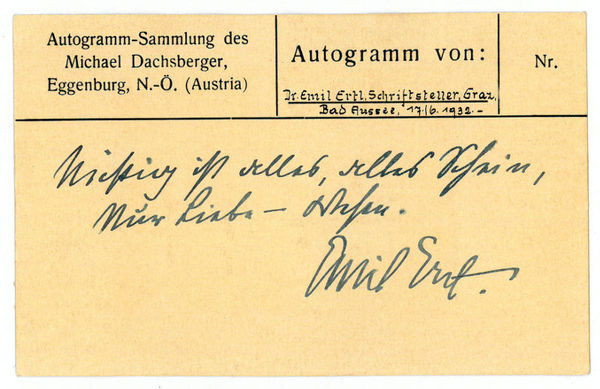 Autogramm-Sammlung des
Michael Dachsberger,
Eggenburg, N.-Ö. (Austria)
Autogramm von:
Dr. Emil Ertl, Schriftsteller, Graz,
Bad Aussee, 17/6. 1932.-
Nr.
Nichtig ist alles, alles Schein,
Nur Liebe – Wesen.
Emil Ertl.